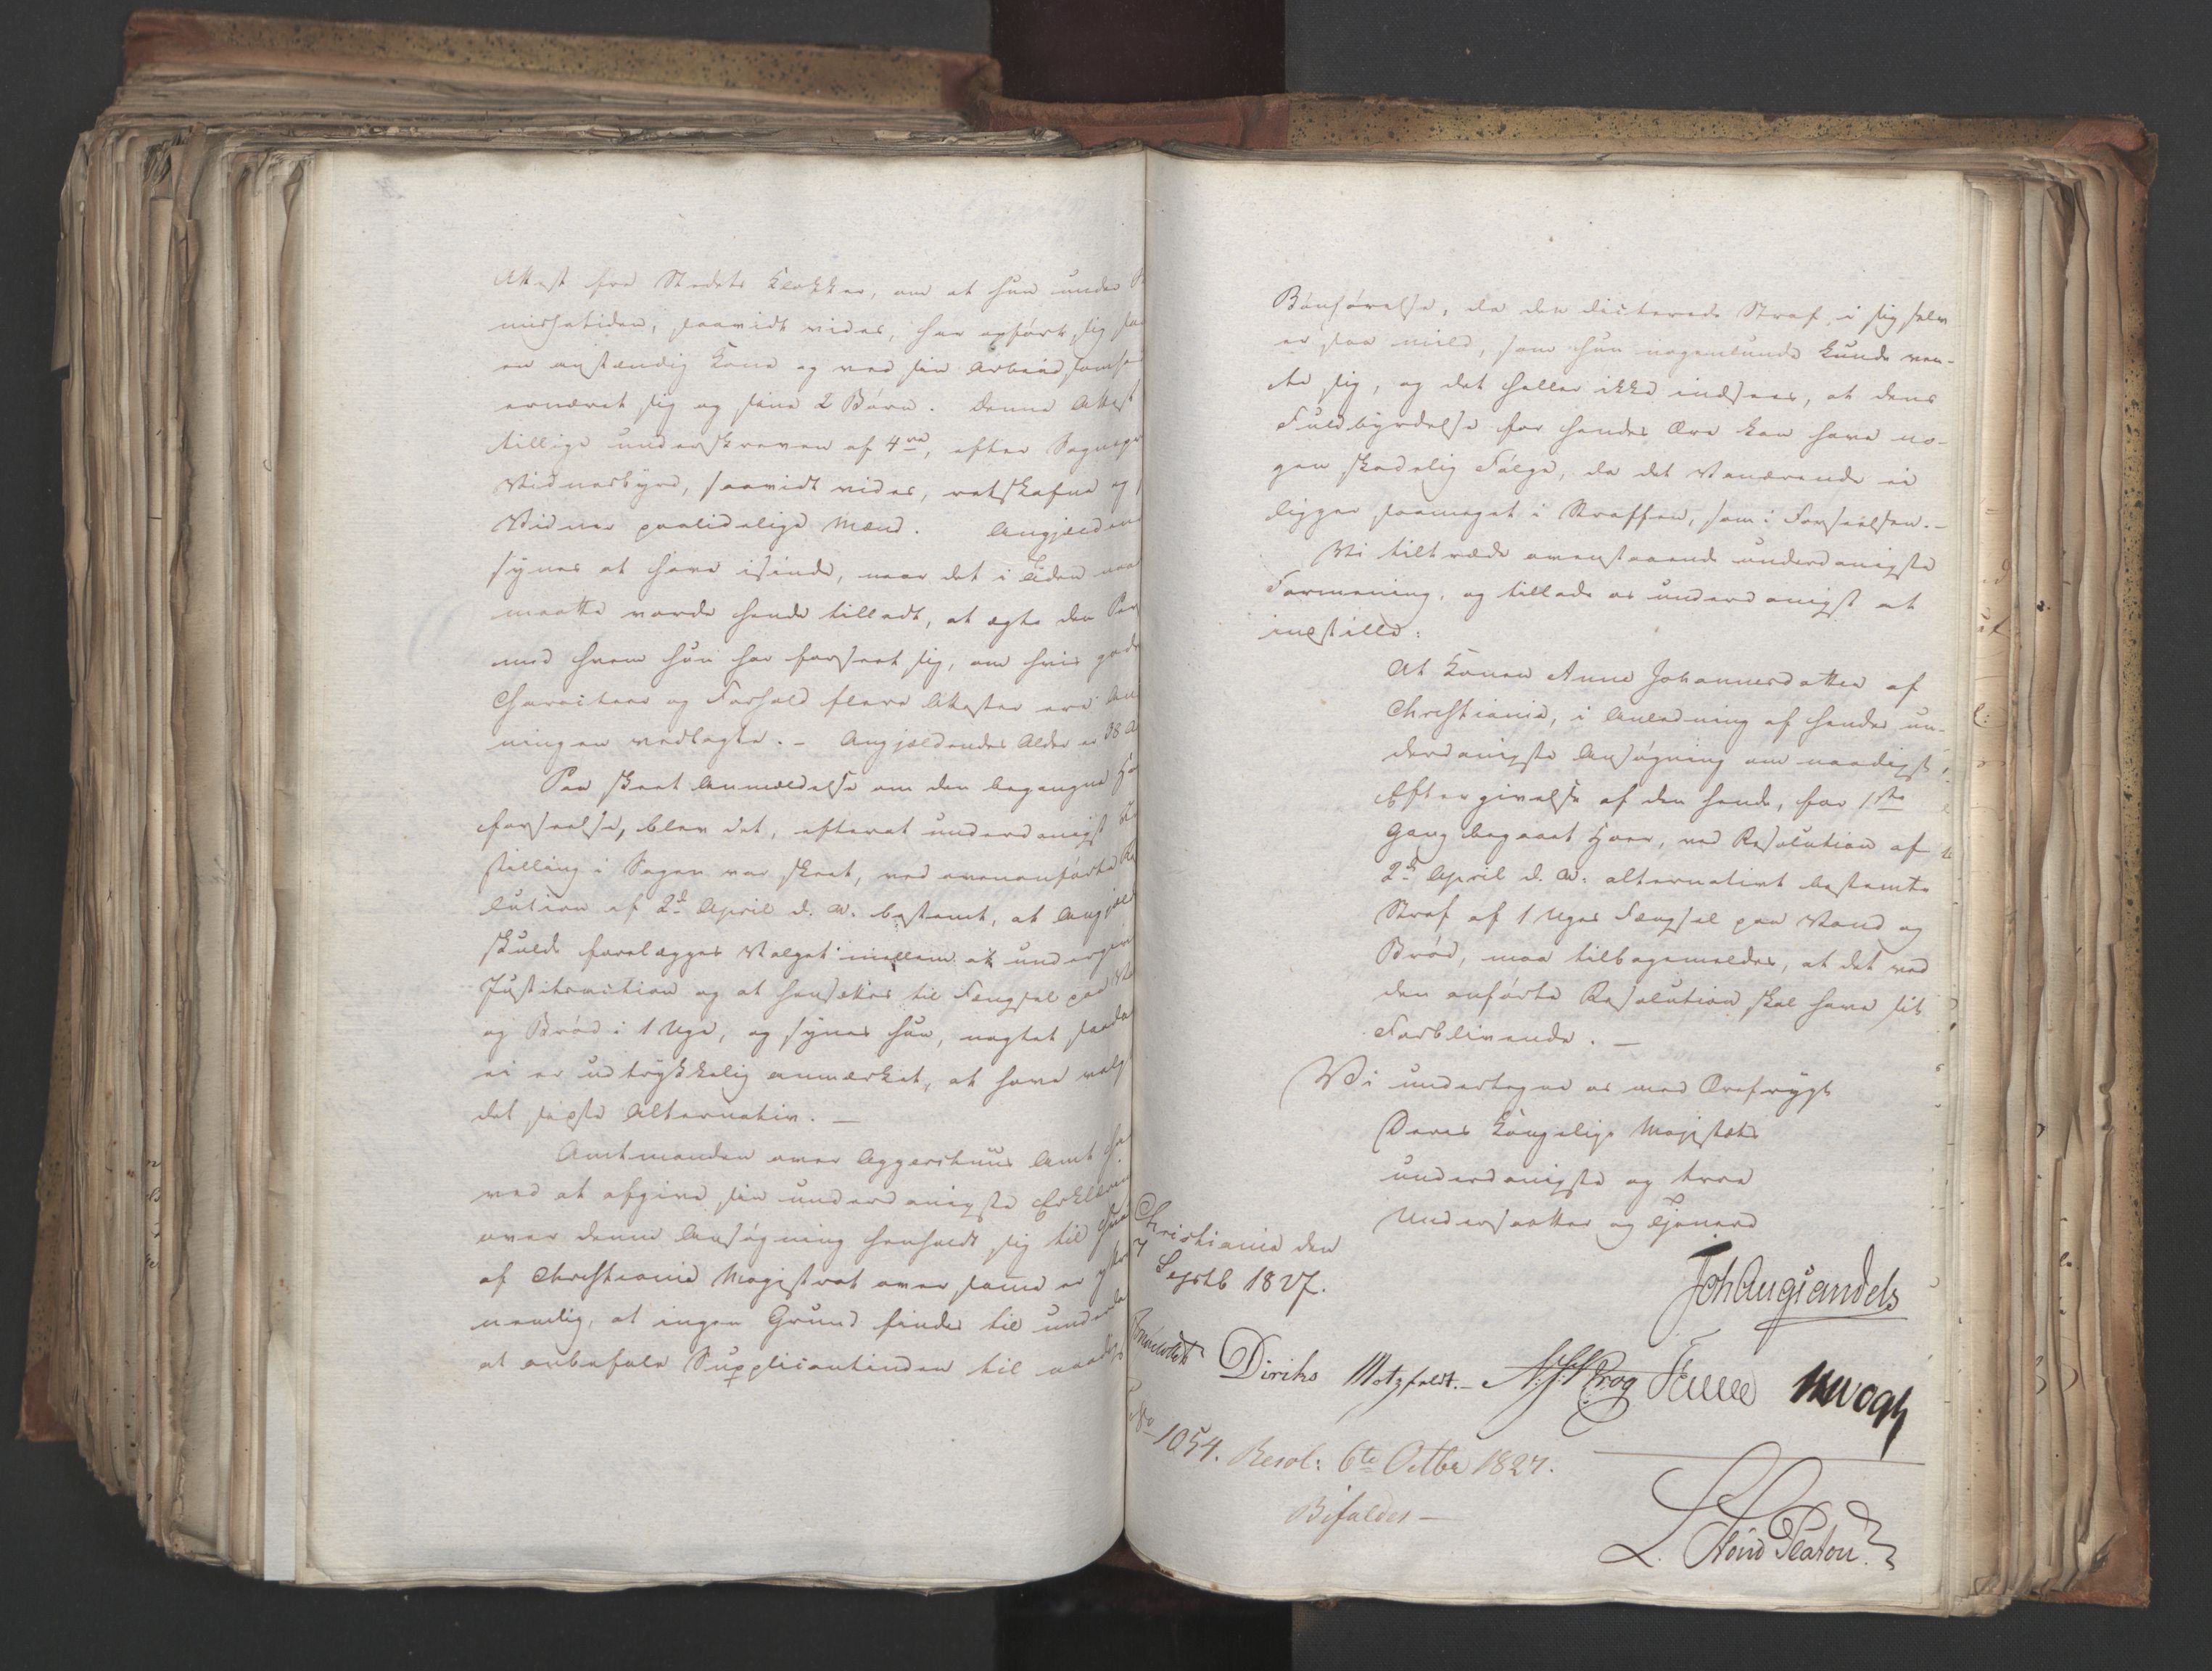 Attest fra Stedets Klokker, om at hun under
mishetiden, saavidt vides, har opført sig som
en anstændig Kone og ved sin Arbeidsomhed
ernæret sig og sine 2 Børn. Denne Attest
tillige underskreven af 4re, efter Sognepr
Vidnesbyrd, saavidt vides, retskafne og
Vidner paalidelige Mænd. Angjelden
synes at have isinde, naar det i Tiden
maatte vorde hende tilladt, at ægte den Per
med hvem hun har forseet sig, om hvis gode
Charakteer og Forhold flere Attester ere An
ningen vedlagte. - Angjeldendes Alder er 38 A
Paa skeet Anmeldelse om den begangne Hor
forseelse, blev det, efterat underdanigst
stilling i Sagen var skeet, ved ovenanførte Re
lution af 2d April d. A. bestemt, at Angjeld
skulde forelægges Valget imellem at undergive
Justitsaction og at hensættes til Fængsel paa Va
og Brød i 1 Uge, og synes hun, uagtet saada
ei er udtrykkelig anmærket, at have valg
det sidste Alternativ. -
Amtmanden over Aggershuus Amt ha
ved at afgive sin underdanigste Erklæring
over denne Ansøgning henholdt sig til
af Christiania Magistrat over samme er
nemlig, at ingen Grund findes til under
at anbefale Supplicantinden til naadigst
Bønhørelse, da den dicterede Straf i sig selv
er saa mild, som hun nogenlunde kunde ven-
te sig, og det heller ikke indsees, at dens
Fuldbyrdelse for hendes Ære kan have no-
gen skadelig Følge, da det Vanærende ei
ligger saameget i Straffen, som i Forseelsen. -
Vi tiltræde ovenstaaende underdanigste
Formening, og tillade os underdanigst at
indstille:
At Konen Anne Johannesdatter af
Christiania, i Anledning af hendes un-
derdanigste Ansøgning om naadigst
Eftergivelse af den hende, for 1ste
Gang begaaet Hoer, ved Resolution af
2d April d. A. alternativt bestemte
Straf af 1 Uges Fængsel paa Vand og
Brød, maa tilbagemeldes, at det ved
den anførte Resolution skal have sit
Forblivende. -
Vi undertegne os med Ærefrygt
Deres Kongelige Majestæts
underdanigste og troe
Undersaatter og Tjenere
Christiania den
7 Septb 1827.
Joh Aug Sandels
Sommerfeldt Diriks Motzfeldt. - Krog Fasting MWogh
No 1054. Resol: 6te Octbr 1827.
Bifaldes -
L. Løvenskiold